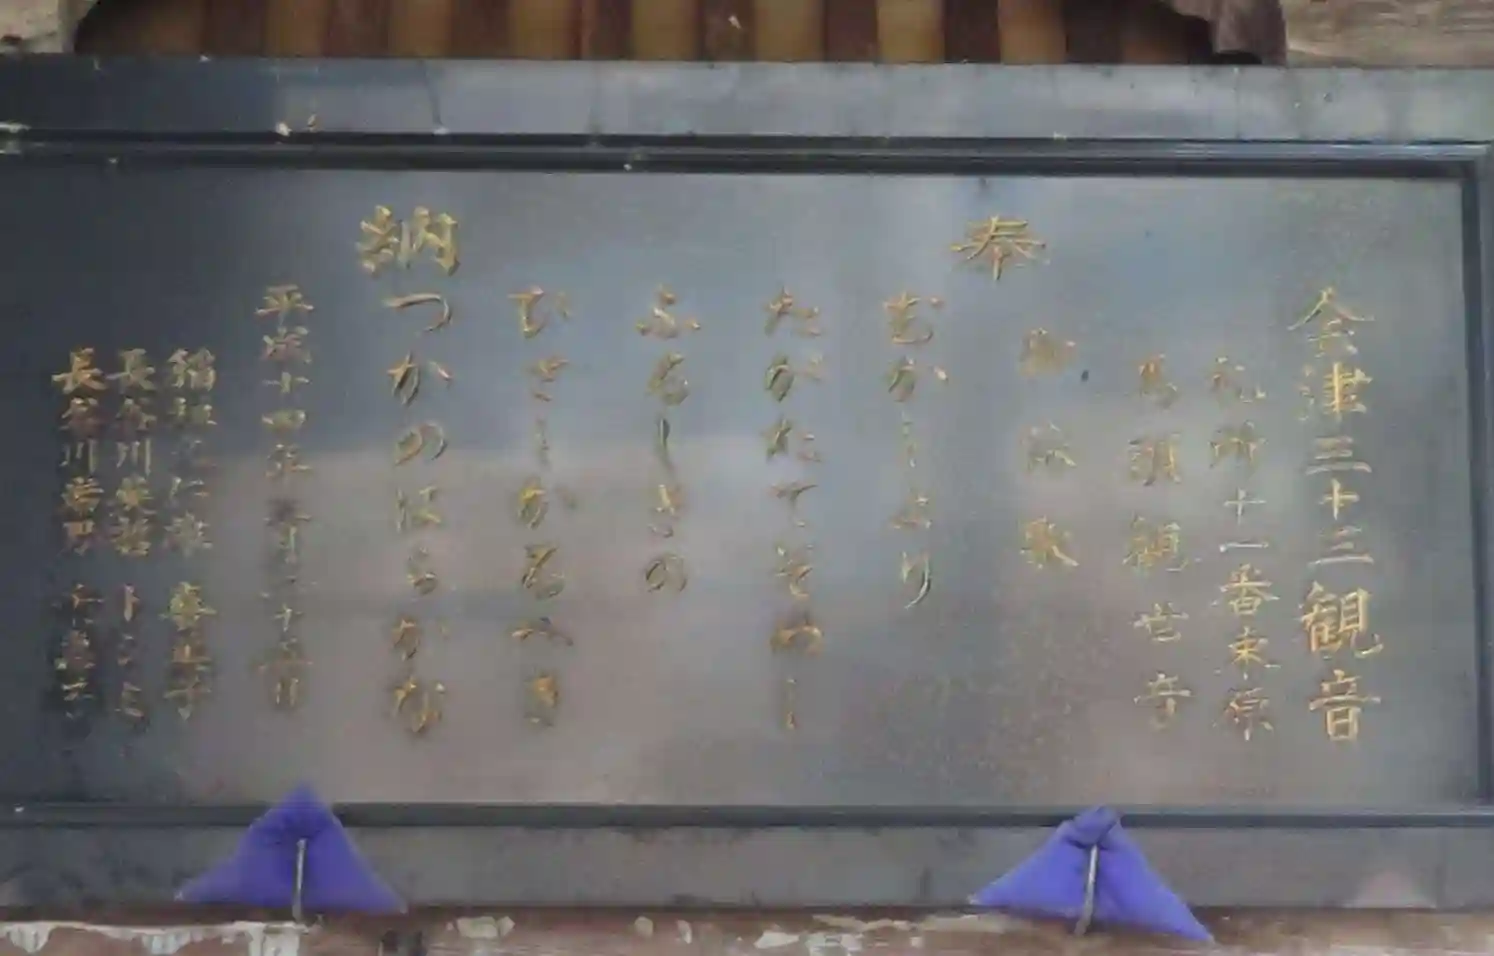 会津三十三観音
札所十一番束原
馬頭観世音
奉
御詠歌
むかしより
たがたてそめし
ふるしきの
ひさしかるべき
つかのはらかな
納
平成十四年
長谷川
長谷川